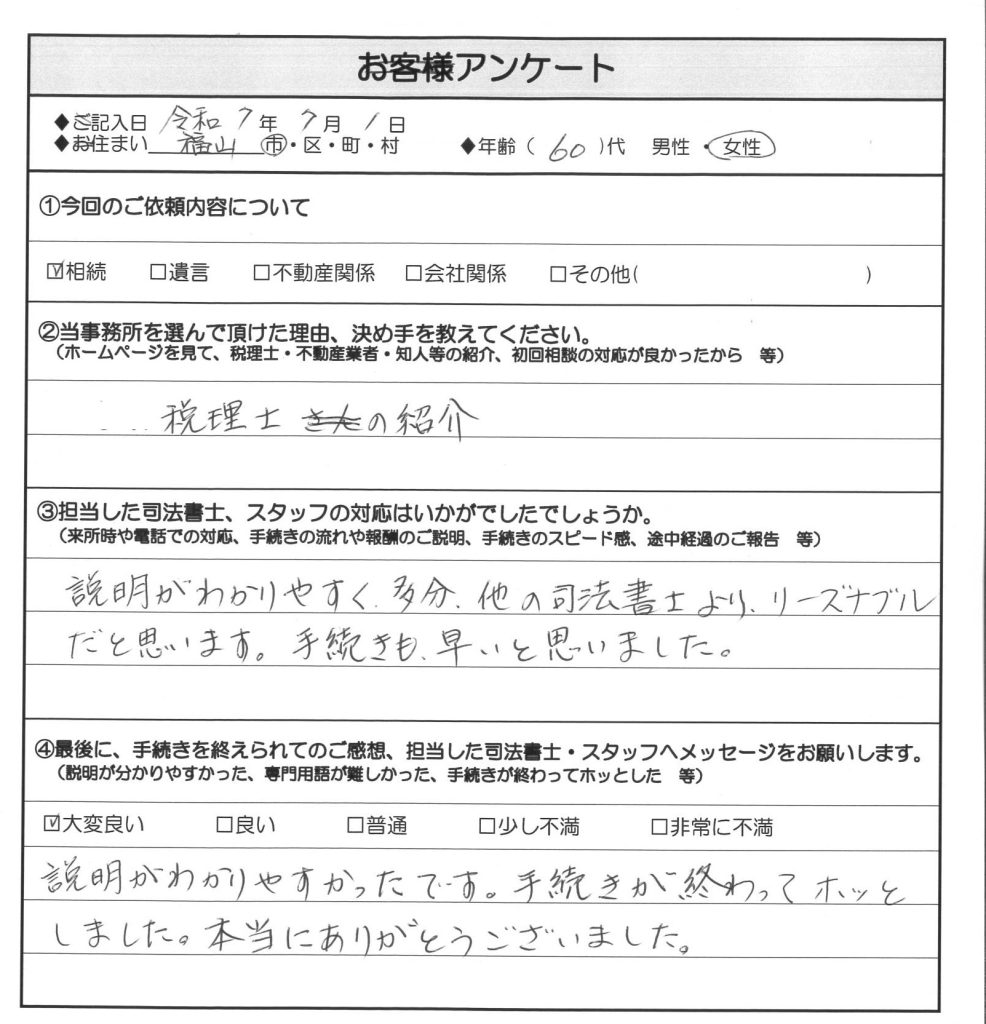 お客様アンケート
◆ご記入日 令和 7 年 7 月 1 日
◆お住まい 福山 市・区・町・村 ◆年齢( 60 )代 男性・女性
①今回のご依頼内容について
☑相続 □遺言 □不動産関係 □会社関係 □その他( )
②当事務所を選んで頂けた理由、決め手を教えてください。
(ホームページを見て、税理士・不動産業者・知人等の紹介、初回相談の対応が良かったから 等)
税理士 さんの紹介
③担当した司法書士、スタッフの対応はいかがでしたでしょうか。
(来所時や電話での対応、手続きの流れや報酬のご説明、手続きのスピード感、途中経過のご報告 等)
説明がわかりやすく、多分、他の司法書士より、リーズナブル
だと思います。手続きも、早いと思いました。
④最後に、手続きを終えられてのご感想、担当した司法書士・スタッフへメッセージをお願いします。
(説明が分かりやすかった、専門用語が難しかった、手続きが終わってホッとした 等)
☑大変良い □良い □普通 □少し不満 □非常に不満
説明がわかりやすかったです。手続きが終わってホッと
しました。本当にありがとうございました。